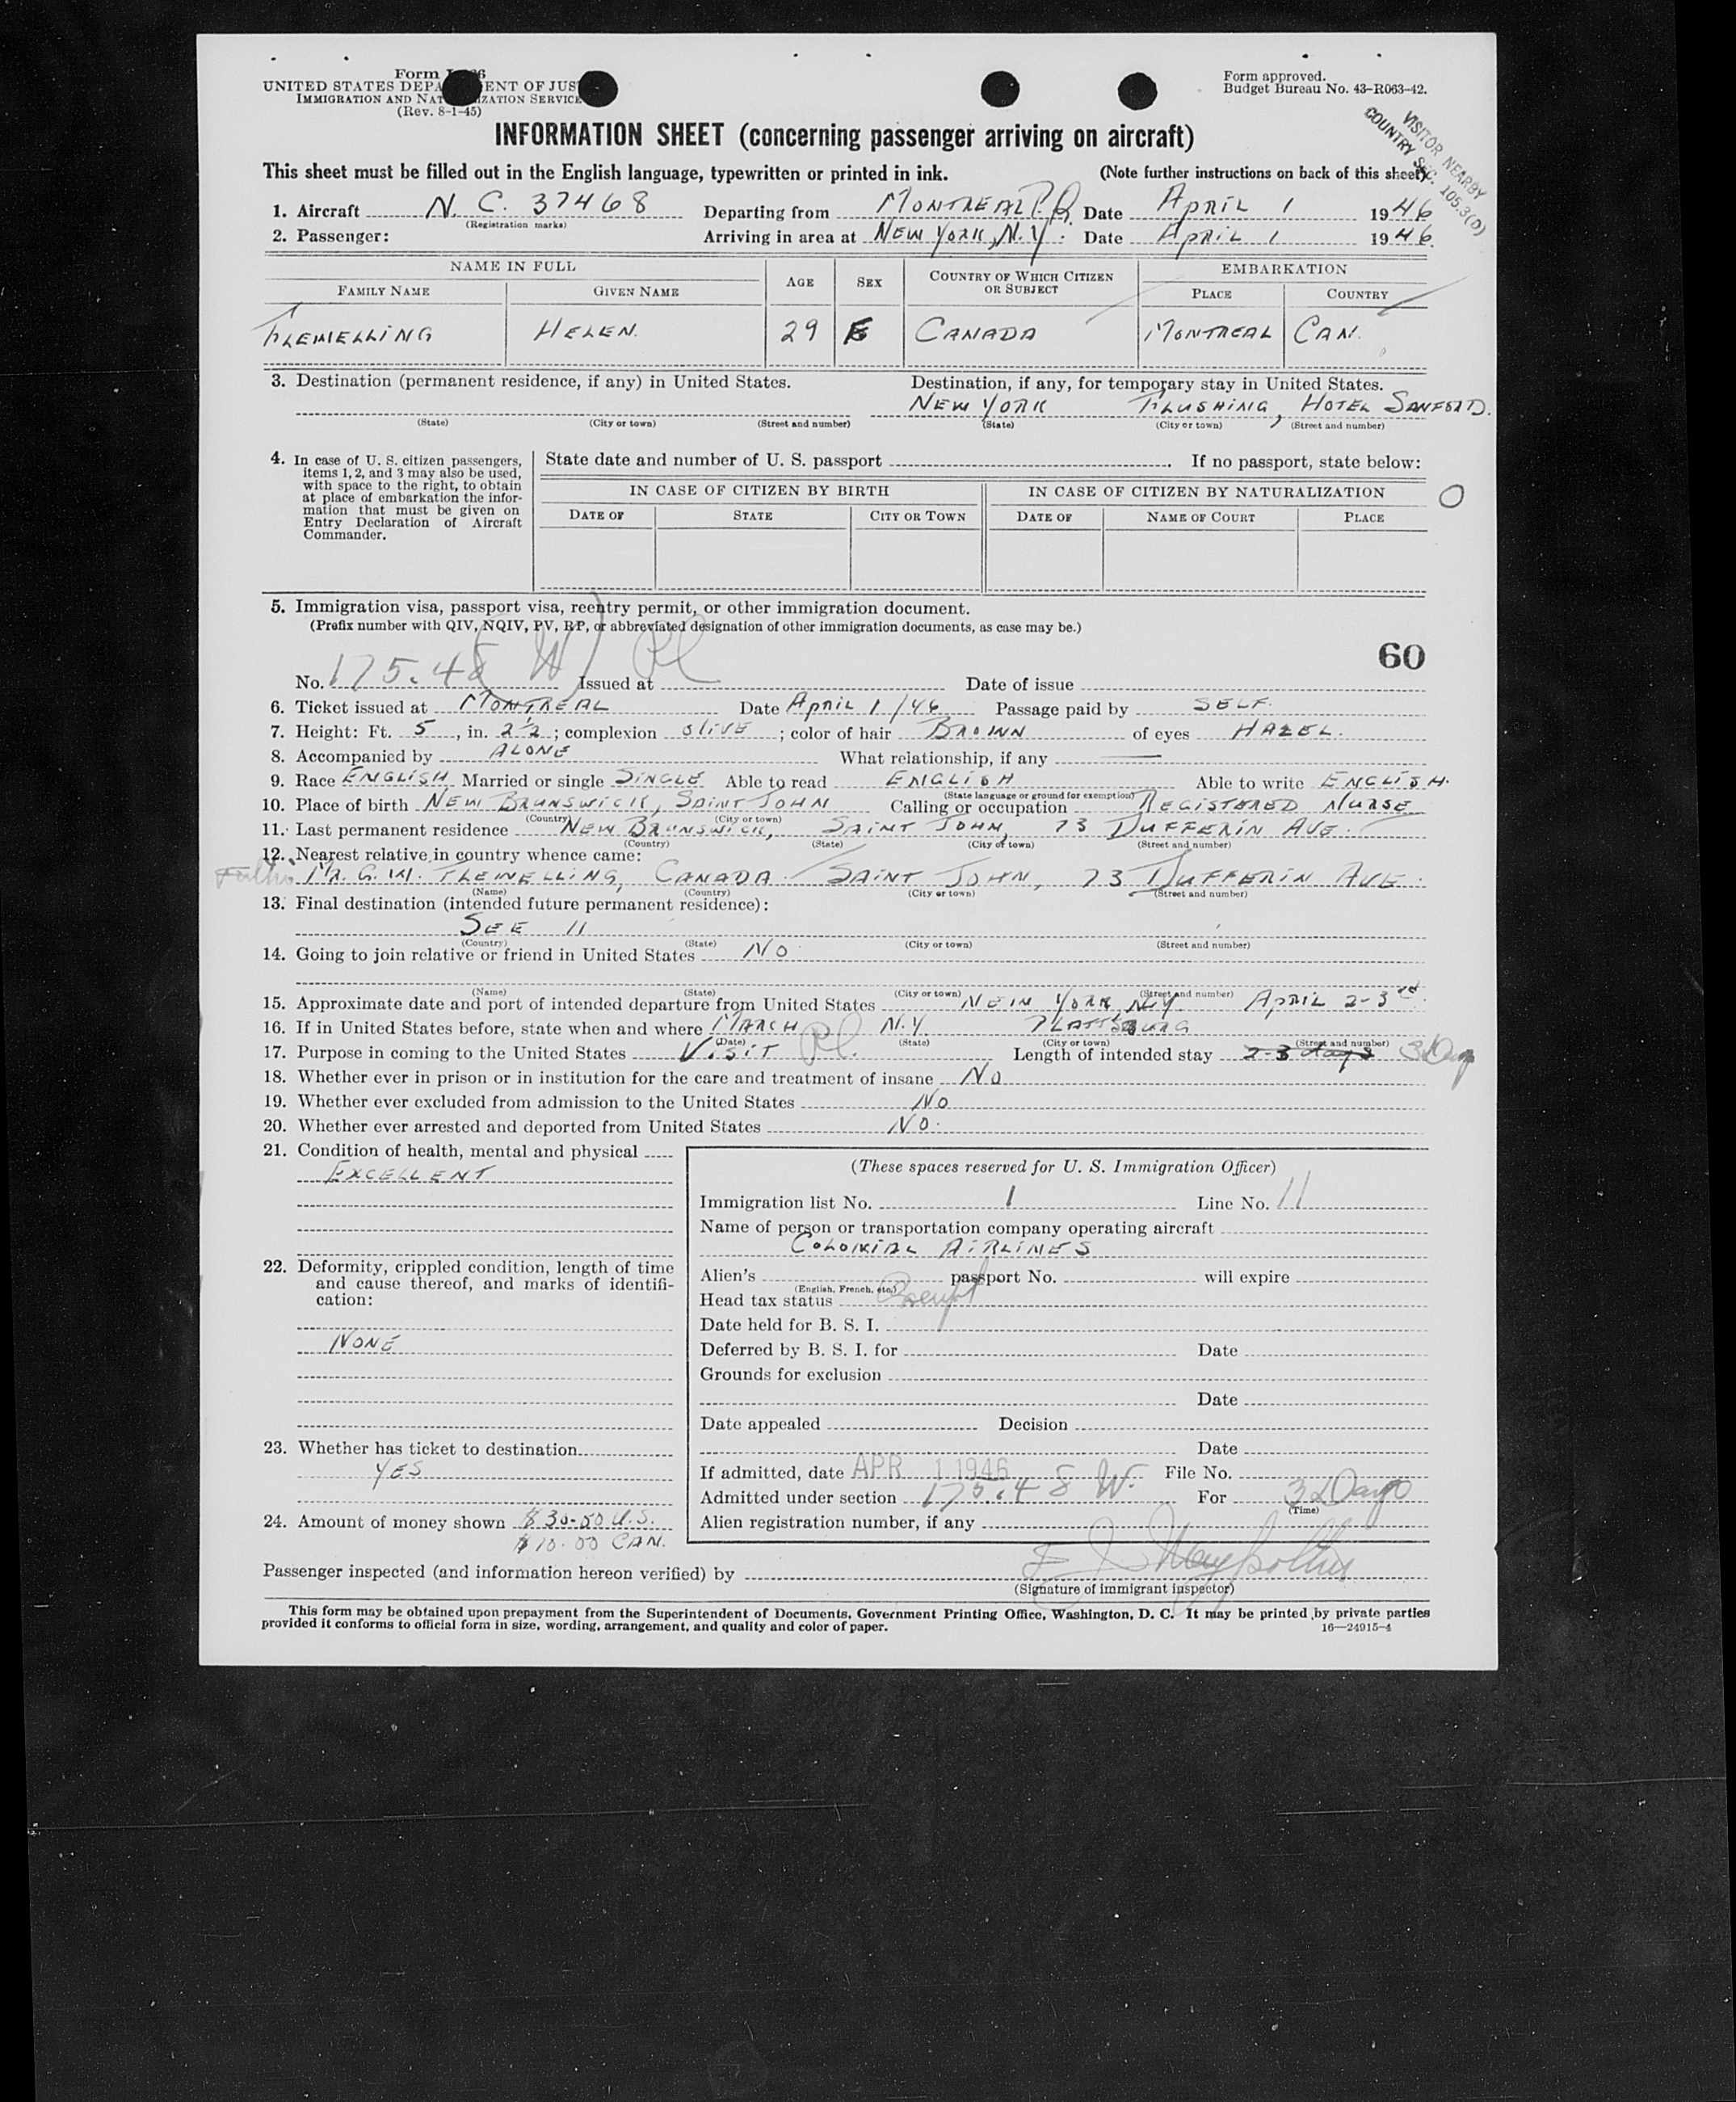 Form
UNITED STATES DEPA ENT OF JUS
IMMIGRATION AND NAT IZATION SERVICE
(Rev. 8-1-45)
Form approved.
Budget Bureau No. 43-R063-42.
VISITOR NEARBY
COUNTRY SEC. 105.3(D)
INFORMATION SHEET (concerning passenger arriving on aircraft)
This sheet must be filled out in the English language, typewritten or printed in ink. (Note further instructions on back of this sheet)
1. Aircraft N. C. 37468 Departing from MONTREAL P.Q. Date APRIL 1 1946
(Registration marks)
2. Passenger: Arriving in area at NEW YORK, N.Y. Date APRIL 1 1946.
NAME IN FULL AGE SEX COUNTRY OF WHICH CITIZEN OR SUBJECT EMBARKATION
FAMILY NAME GIVEN NAME PLACE COUNTRY
FLEWELLING HELEN. 29 F CANADA MONTREAL CAN.
3. Destination (permanent residence, if any) in United States. Destination, if any, for temporary stay in United States.
NEW YORK FLUSHING, HOTEL SANFORD.
(State) (City or town) (Street and number) (State) (City or town) (Street and number)
4. In case of U. S. citizen passengers, items 1, 2, and 3 may also be used, with space to the right, to obtain at place of embarkation the information that must be given on Entry Declaration of Aircraft Commander.
State date and number of U. S. passport . If no passport, state below:
IN CASE OF CITIZEN BY BIRTH IN CASE OF CITIZEN BY NATURALIZATION
DATE OF STATE CITY OR TOWN DATE OF NAME OF COURT PLACE
5. Immigration visa, passport visa, reentry permit, or other immigration document.
(Prefix number with QIV, NQIV, PV, RP, or abbreviated designation of other immigration documents, as case may be.)
60
No. 175.48 (W) Pl Issued at Date of issue
6. Ticket issued at MONTREAL Date APRIL 1/46 Passage paid by SELF.
7. Height: Ft. 5, in. 2 1/2; complexion OLIVE; color of hair BROWN of eyes HAZEL.
8. Accompanied by ALONE What relationship, if any —
9. Race ENGLISH Married or single SINGLE Able to read ENGLISH Able to write ENGLISH.
(State language or ground for exemption)
10. Place of birth NEW BRUNSWICK, SAINT JOHN Calling or occupation REGISTERED NURSE
(Country) (City or town)
11. Last permanent residence NEW BRUNSWICK, SAINT JOHN, 73 DUFFERIN AVE.
(Country) (State) (City or town) (Street and number)
12. Nearest relative in country whence came:
Father MR. G. W. FLEWELLING, CANADA SAINT JOHN, 73 DUFFERIN AVE.
(Name) (Country) (City or town) (Street and number)
13. Final destination (intended future permanent residence):
SEE 11
(Country) (State) (City or town) (Street and number)
14. Going to join relative or friend in United States NO
(Name) (State) (City or town) (Street and number)
15. Approximate date and port of intended departure from United States NEW YORK N.Y. APRIL 2-3rd.
16. If in United States before, state when and where MARCH N.Y. PLATTSBURG
(Date) (State) (City or town) (Street and number)
17. Purpose in coming to the United States VISIT Pl. Length of intended stay 2-3 days 3 Days
18. Whether ever in prison or in institution for the care and treatment of insane NO
19. Whether ever excluded from admission to the United States NO
20. Whether ever arrested and deported from United States NO.
21. Condition of health, mental and physical
EXCELLENT
22. Deformity, crippled condition, length of time and cause thereof, and marks of identification:
NONE
23. Whether has ticket to destination
YES
24. Amount of money shown $30.50 U.S.
$10.00 CAN.
(These spaces reserved for U. S. Immigration Officer)
Immigration list No. 1 Line No. 11
Name of person or transportation company operating aircraft
COLONIAL AIRLINES
Alien's passport No. will expire
(English, French, etc.)
Head tax status Exempt
Date held for B. S. I.
Deferred by B. S. I. for Date
Grounds for exclusion
Date
Date appealed Decision
Date
If admitted, date APR 1 1946 File No.
Admitted under section 175.48 W. For 3 Days
(Time)
Alien registration number, if any
Passenger inspected (and information hereon verified) by
(Signature of immigrant inspector)
This form may be obtained upon prepayment from the Superintendent of Documents, Government Printing Office, Washington, D. C. It may be printed by private parties
provided it conforms to official form in size, wording, arrangement, and quality and color of paper. 16—24915-4